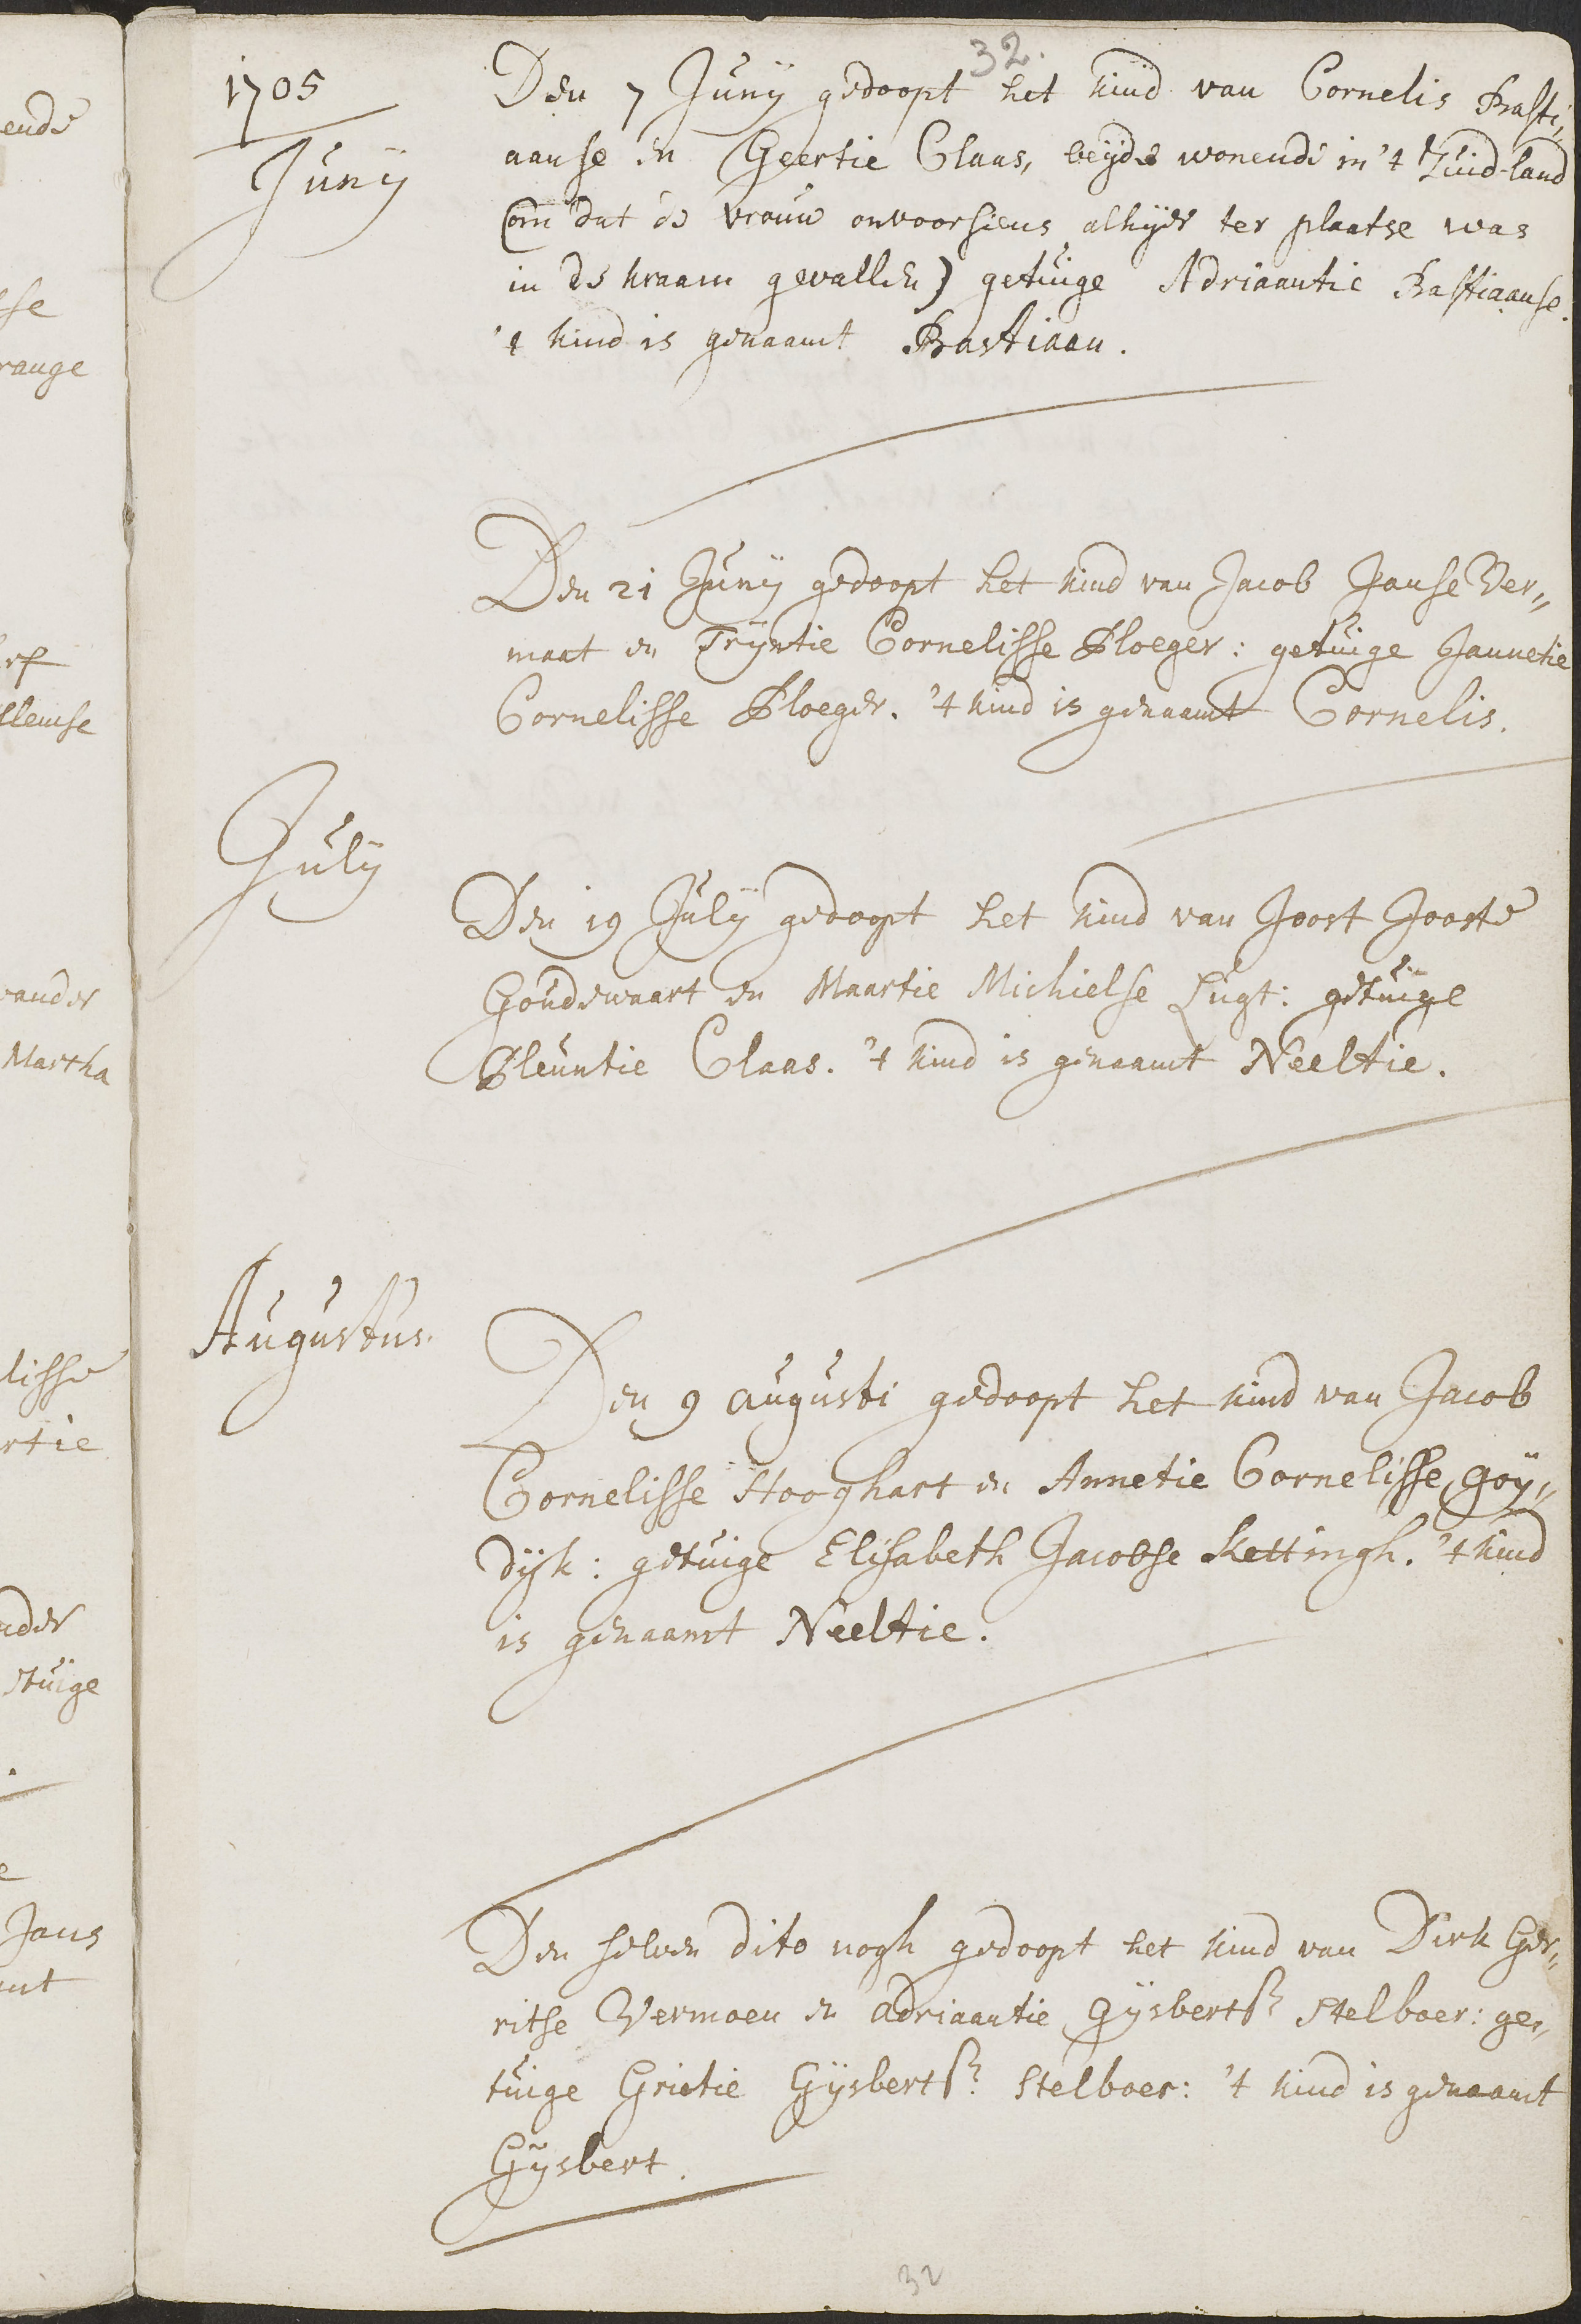 32.
1705
Junÿ
Den 7 Junÿ gedoopt het kind van Cornelis Basti„
aanse en Geertie Claas, beÿde wonende in 't Zuid-land
(om dat de vrouw onvoorsiens alhÿer ter plaatse was
in de kraam gevallen) getuige Adriaantie Bastiaanse.
't kind is genaamt Bastiaan.
Den 21 Junÿ gedoopt het kind van Jacob Janse Ver„
maat en Trÿntie Cornelisse Ploeger: getuige Jannetie
Cornelisse Ploeger. 't kind is genaamt Cornelis.
Julÿ
Den 19 Julÿ gedoopt het kind van Joost Jooste
Goudswaart en Maartie Michielse Lugt: getuige
Pleuntie Claas. 't kind is genaamt Neeltie.
Augustus.
Den 9 augusti gedoopt het kind van Jacob
Cornelisse Hooghart en Annetie Cornelisse Goÿ„
dÿk: getuige Elisabeth Jacobse Kettingh. 't kind
is genaamt Neeltie.
Den selven dito nogh gedoopt het kind van Dirk Ger„
ritse Vermoen en adriaantie Gÿsbertse Stelboer: ge„
tuige Grietie Gÿsbertse Stelboer: 't kind is genaamt
Gÿsbert.
32
ende
sse
range
llemse
vander
Martha
lisse
rtie
nder
tuige
Jans